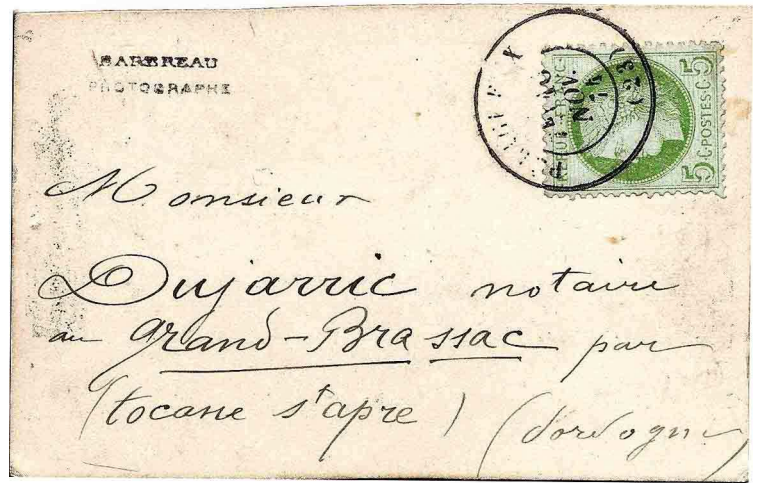 BAREREAU
PHOTOGRAPHE
5 C·POSTES·C·5
NOV.
(23)
Monsieur
Dujarric notaire
au grand-Brassac par
(tocane st apre) (Dordogne